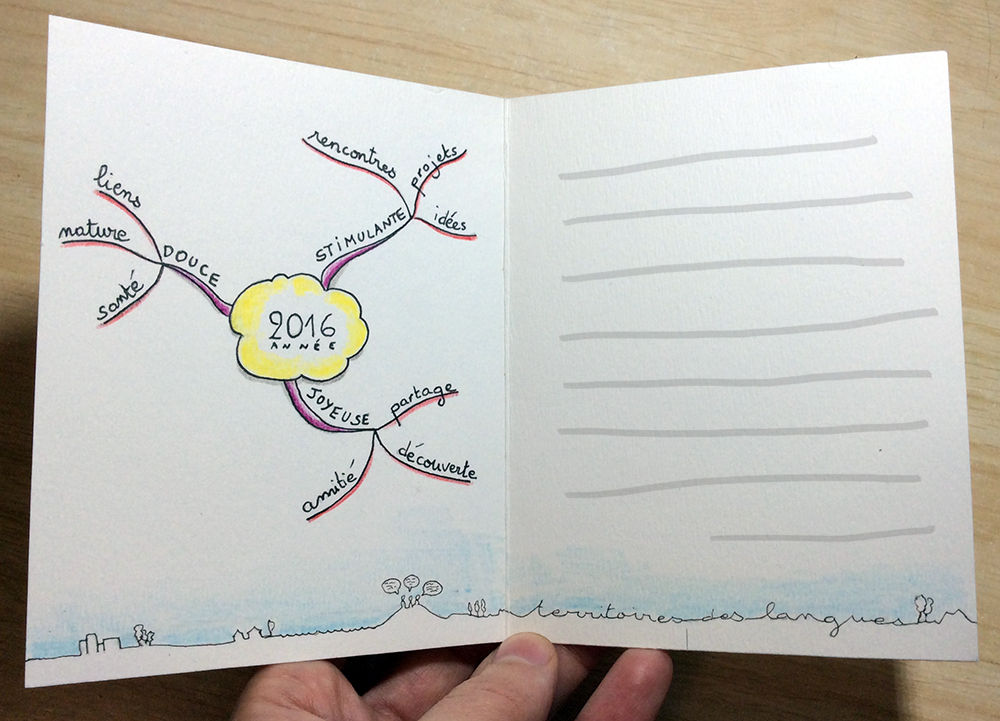 2016
ANNÉE
STIMULANTE
rencontres
projets
idées
DOUCE
liens
nature
santé
JOYEUSE
partage
découverte
amitié
territoires des langues